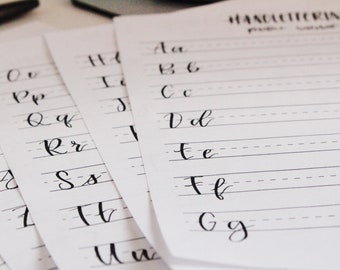 HANDLETTERIN
Aa
Bb
Cc
Dd
Ee
Ff
Gg
H
I
J
Oo
Pp
Qq
Rr
Ss
Tt
Uu